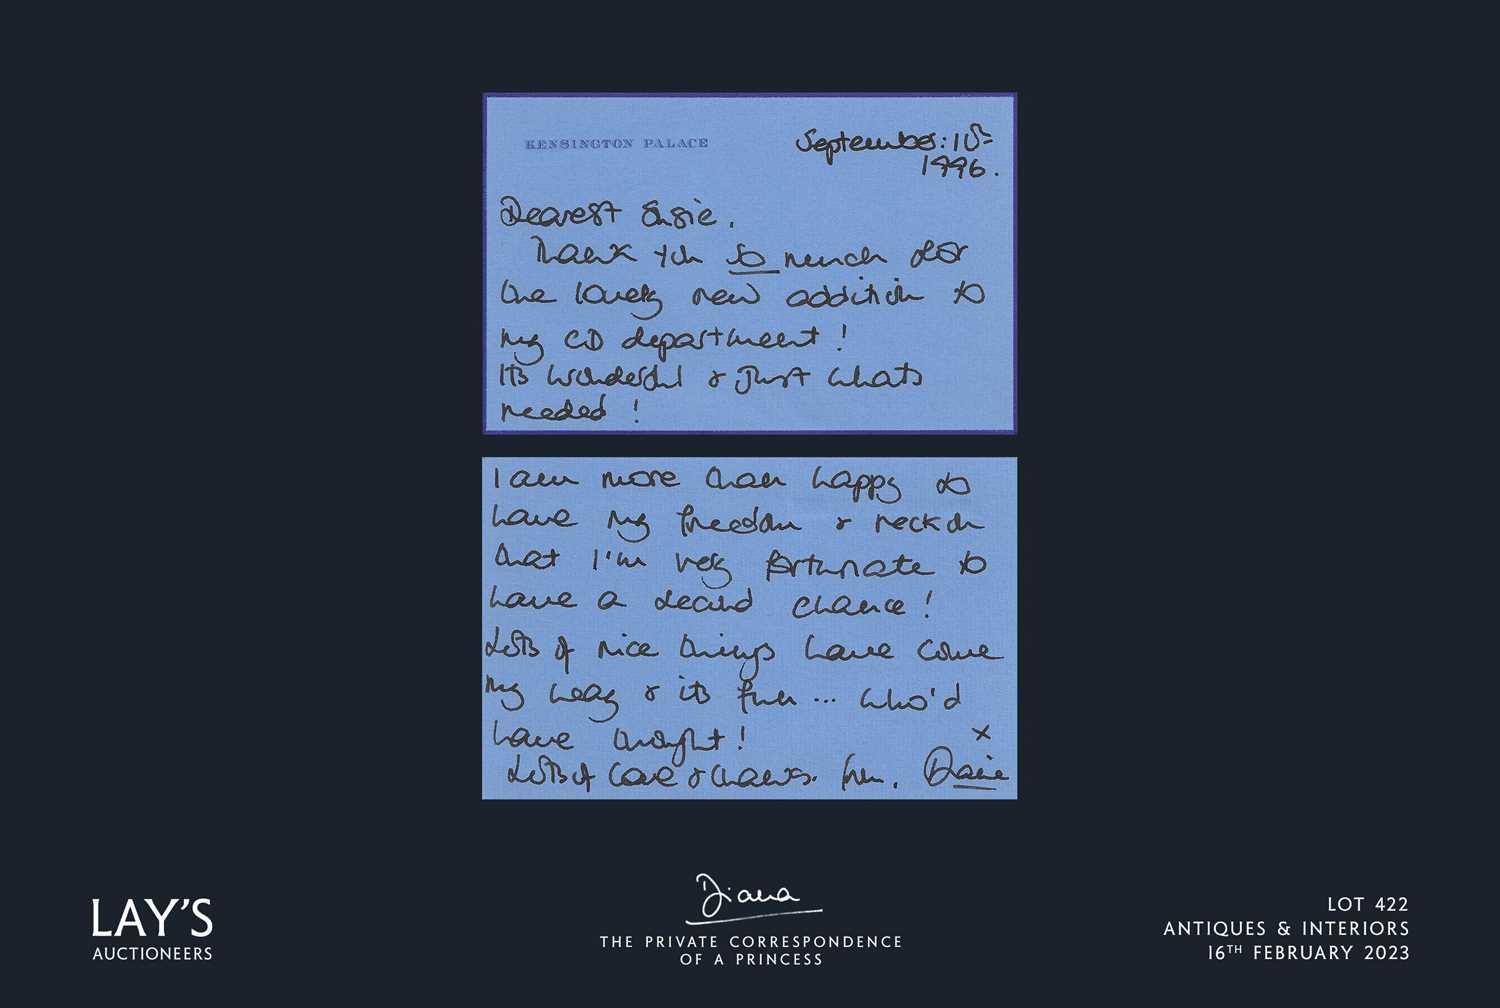 KENSINGTON PALACE
September: 10th
1996.
Dearest Susie.
Thank you so much for
the lovely new addition to
my CD department!
Its wonderful & just whats
needed!
I am more than happy to
have my freedom & reckon
that I'm very fortunate to
have a second chance!
Lots of nice things have come
my way & its fun... who'd
have thought!
x
Lots of love & thanks. from. Diana
LAY'S
AUCTIONEERS
Diana
THE PRIVATE CORRESPONDENCE
OF A PRINCESS
LOT 422
ANTIQUES & INTERIORS
16TH FEBRUARY 2023